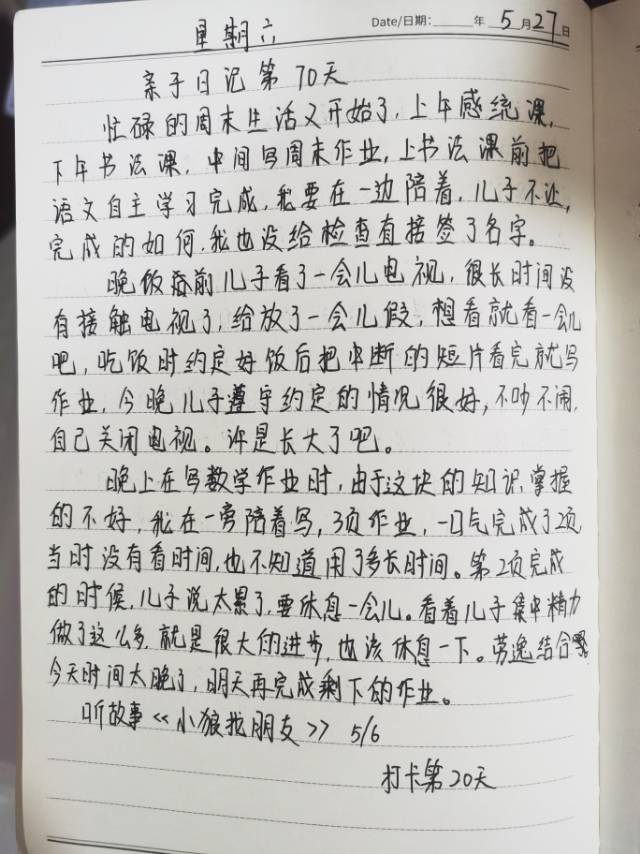 星期六 Date/日期: 年 5月27日
亲子日记第70天
忙碌的周末生活又开始了,上午感统课,
下午书法课,中间写周末作业,上书法课前把
语文自主学习完成,我要在一边陪着,儿子不让,
完成的如何,我也没给检查直接签了名字。
晚饭前儿子看了一会儿电视,很长时间没
有接触电视了,给放了一会儿假,想看就看一会儿
吧,吃饭时约定好饭后把中断的短片看完就写
作业,今晚儿子遵守约定的情况很好,不吵不闹,
自己关闭电视。许是长大了吧。
晚上在写数学作业时,由于这块的知识掌握
的不好,我在一旁陪着写,3项作业,一口气完成了2项,
当时没有看时间,也不知道用了多长时间。第2项完成
的时候,儿子说太累了,要休息一会儿。看着儿子集中精力
做了这么多,就是很大的进步,也该休息一下。劳逸结合
今天时间太晚了,明天再完成剩下的作业。
听故事《小狼找朋友》 5/6
打卡第20天